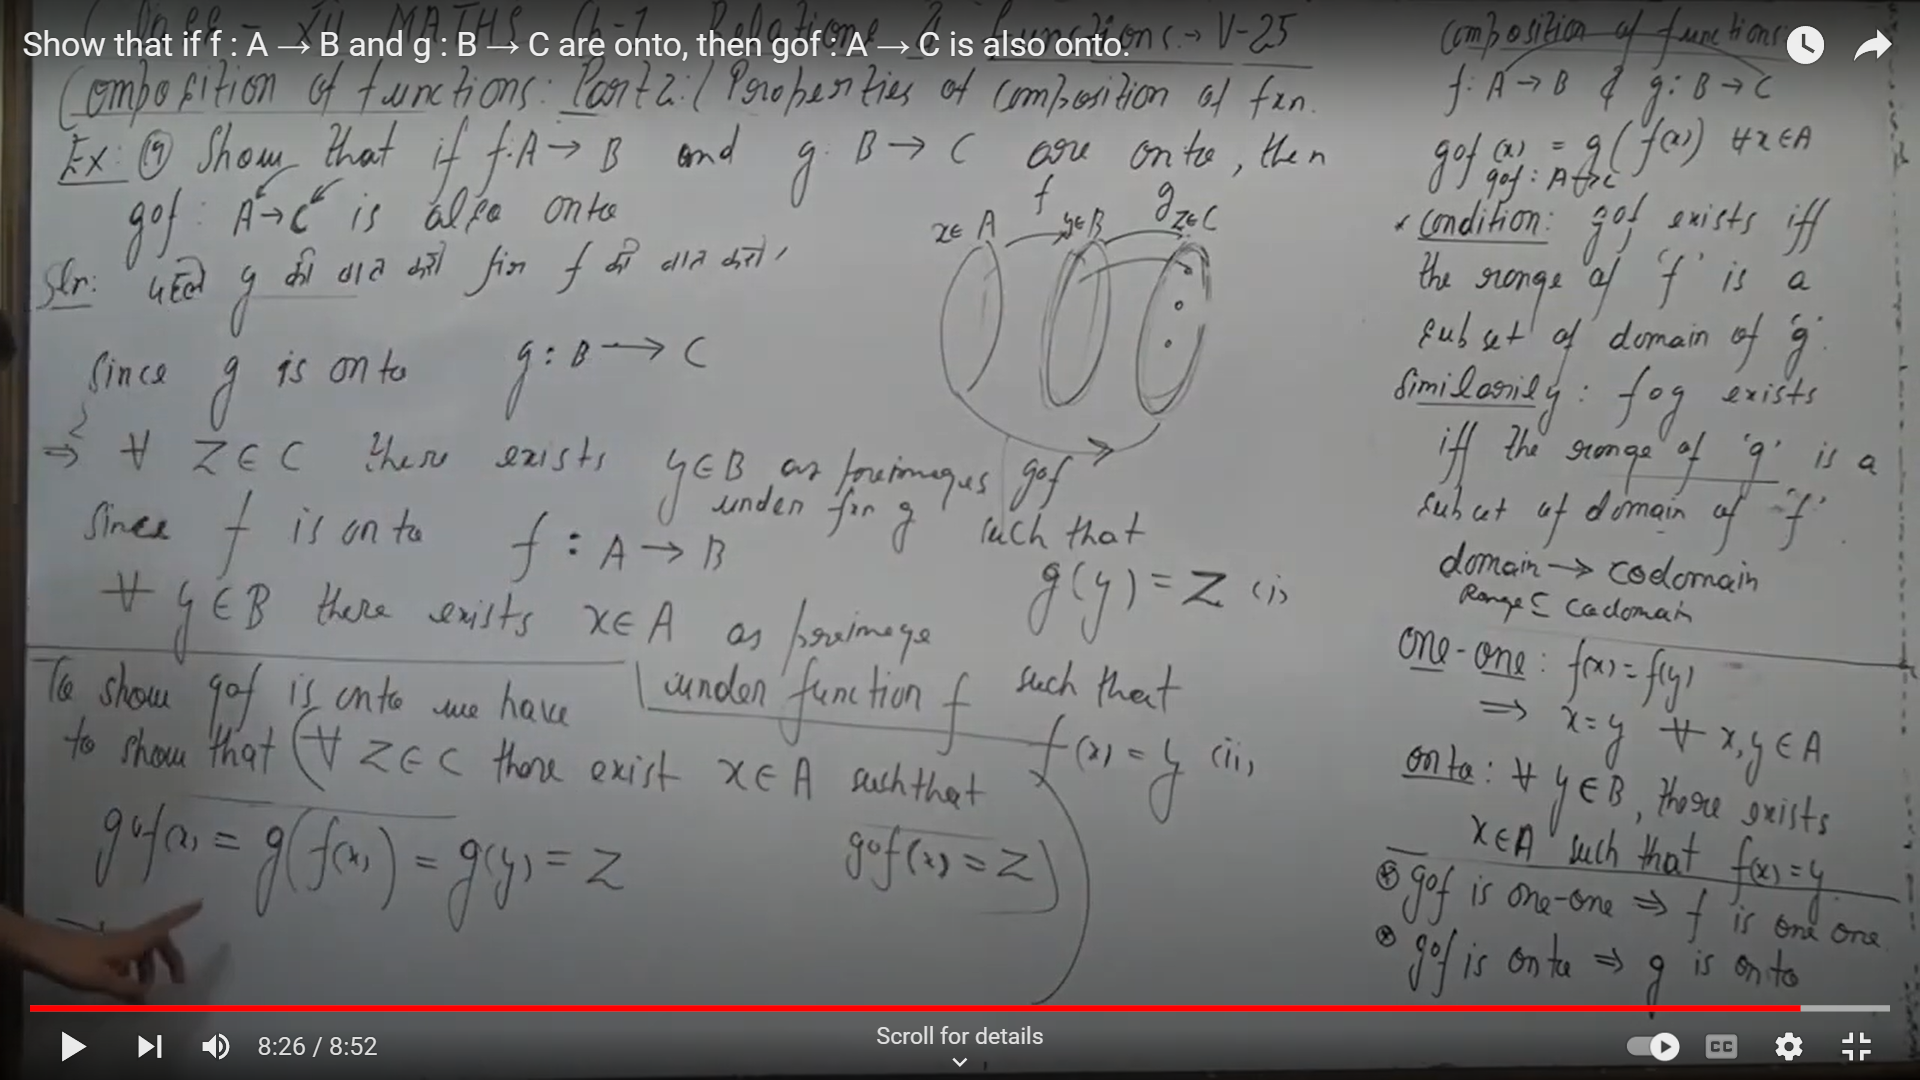 Show that if f : A → B and g : B → C are onto, then gof : A → C is also onto.
MATHS Ch-1 Relations & Functions → V-25
Composition of functions: Part 2: / Properties of composition of fxn.
Ex: 19 Show that if f: A → B and g: B → C are onto, then
gof : A → C is also onto
Sln: पहले g की बात करो फिर f की बात करो,
x∈ A f y∈B g z∈C
Since g is onto g : B ⟶ C
⇒ ∀ Z ∈ C there exists y∈B as preimages
under fxn g such that
gof
g(y) = Z (i)
Since f is onto f : A → B
∀ y ∈ B there exists x∈A as preimage
under function f such that
f(x) = y (ii)
To show gof is onto we have
to show that (∀ Z ∈ C there exist x∈A such that
gof(x) = Z)
gof(x) = g(f(x)) = g(y) = Z
Composition of functions
f: A → B & g: B → C
gof (x) = g(f(x)) ∀x∈A
gof : A→C
* Condition: gof exists iff
the range of 'f' is a
subset of domain of 'g'.
Similarily: fog exists
iff the range of 'g' is a
subset of domain of 'f'.
domain → codomain
Range ⊆ codomain
one-one: f(x) = f(y)
⇒ x=y ∀ x,y ∈ A
onto: ∀ y∈B, there exists
x∈A such that f(x)=y
⊛ gof is one-one ⇒ f is one one
⊛ gof is onto ⇒ g is onto
8:26 / 8:52
Scroll for details
CC